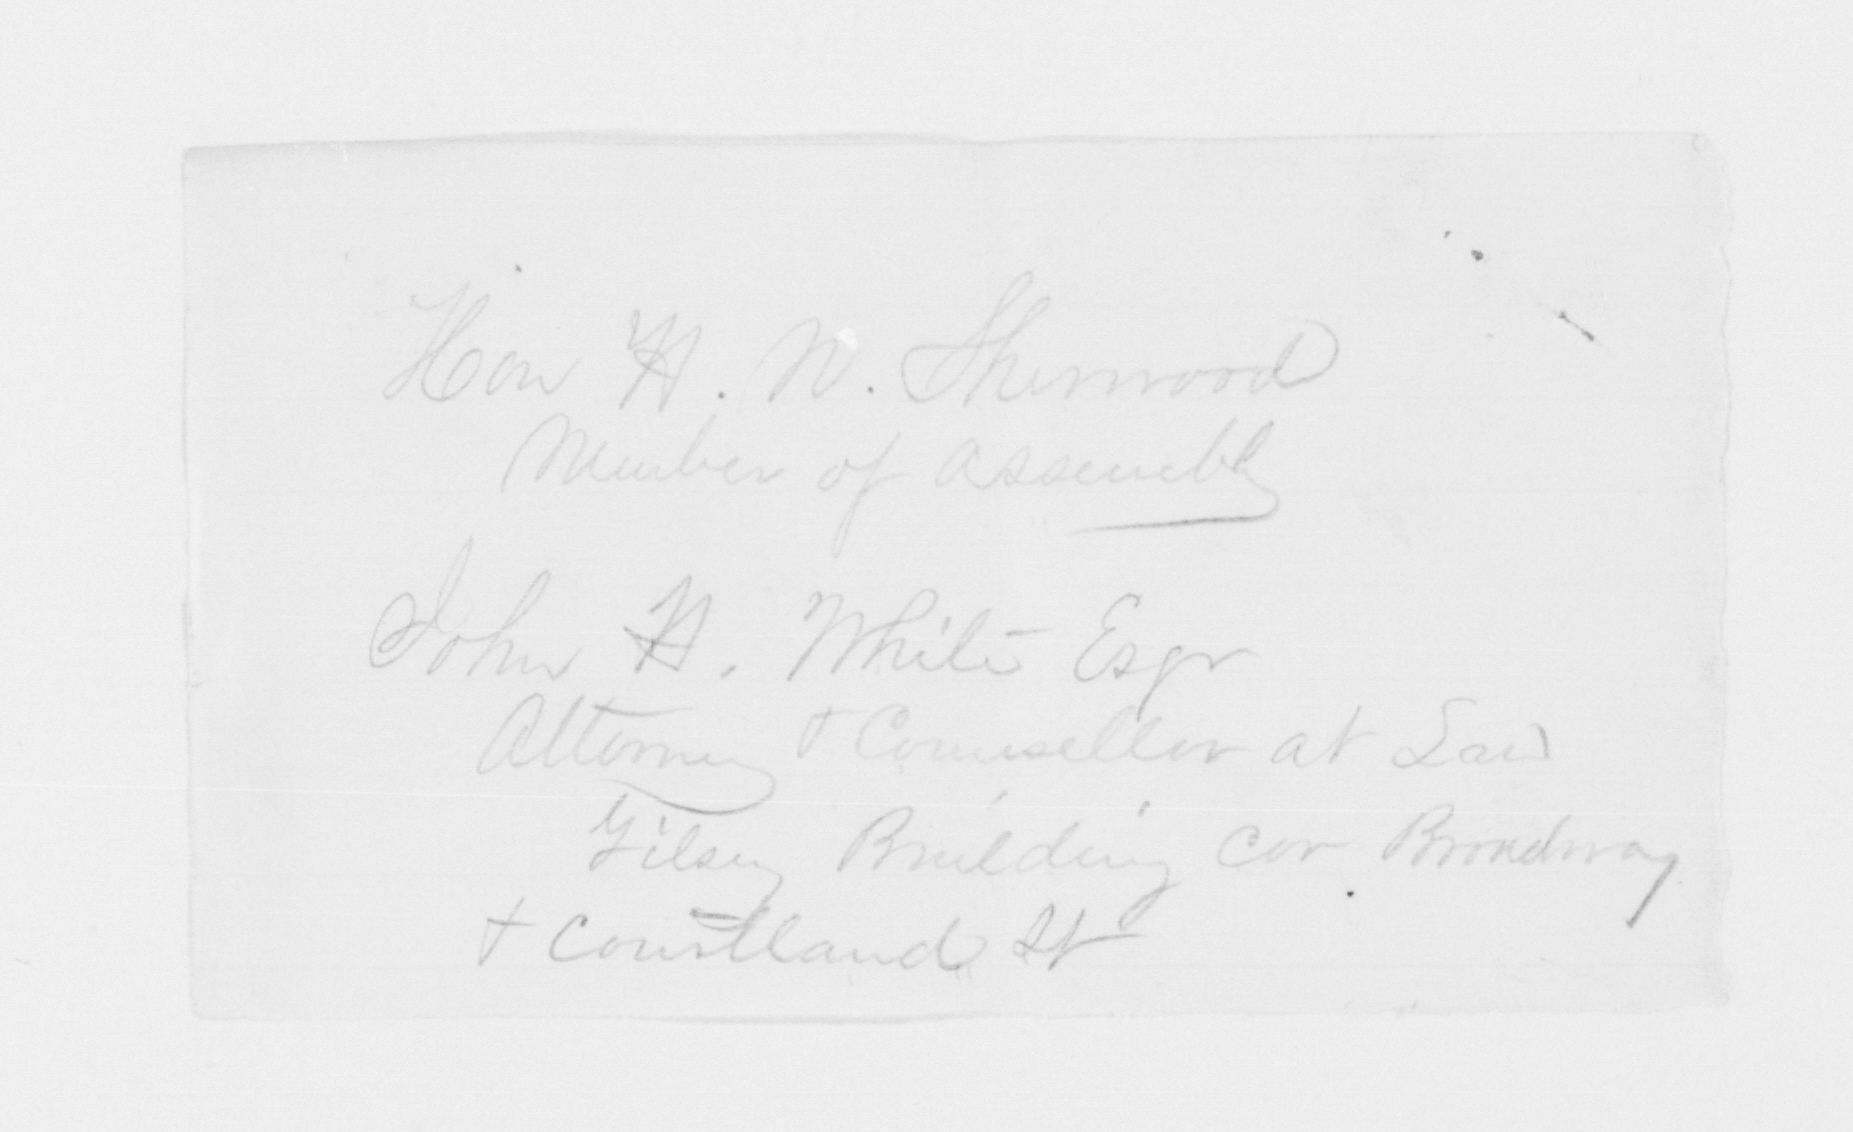 Hon H. W. Sherwood
Member of Assembly
John H. White Esqr
Attorney & Counsellor at Law
Gilsey Building cor Broadway
& Courtland St